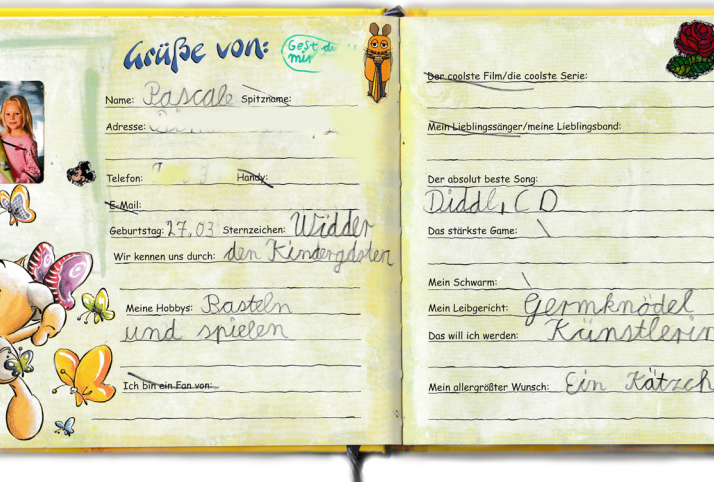 Grüße von:
Gest du
mir
Name: Pascale Spitzname:
Adresse:
Telefon: Handy:
E-Mail:
Geburtstag: 27.03 Sternzeichen: Widder
Wir kennen uns durch: den Kindergarten
Meine Hobbys: Basteln
und spielen
Ich bin ein Fan von:
Der coolste Film/die coolste Serie:
Mein Lieblingssänger/meine Lieblingsband:
Der absolut beste Song:
Diddl, CD
Das stärkste Game: \
Mein Schwarm: \
Mein Leibgericht: Germknödel
Das will ich werden: Künstlerin
Mein allergrößter Wunsch: Ein Kätzch